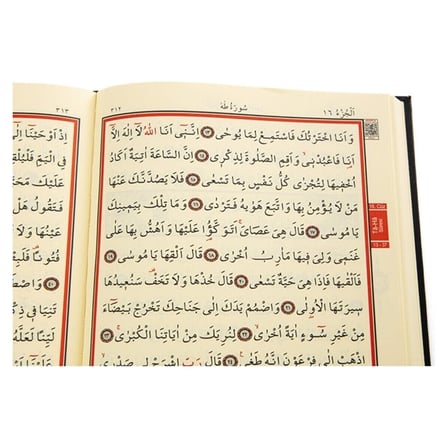 اَلْجُزْءُ ١٦
سُورَةُ طٰهٰ
٣١٢
وَاَنَا اخْتَرْتُكَ فَاسْتَمِعْ لِمَا يُوحٰى ﴿١٣﴾ اِنَّنٖٓي اَنَا اللّٰهُ لَٓا اِلٰهَ اِلَّٓا
اَنَا فَاعْبُدْنٖي وَاَقِمِ الصَّلٰوةَ لِذِكْرٖي ﴿١٤﴾ اِنَّ السَّاعَةَ اٰتِيَةٌ اَكَادُ
اُخْفٖيهَا لِتُجْزٰى كُلُّ نَفْسٍ بِمَا تَسْعٰى ﴿١٥﴾ فَلَا يَصُدَّنَّكَ عَنْهَا
مَنْ لَا يُؤْمِنُ بِهَا وَاتَّبَعَ هَوٰيهُ فَتَرْدٰى ﴿١٦﴾ وَمَا تِلْكَ بِيَمٖينِكَ
يَا مُوسٰى ﴿١٧﴾ قَالَ هِيَ عَصَايَ اَتَوَكَّؤُا عَلَيْهَا وَاَهُشُّ بِهَا عَلٰى
غَنَمٖي وَلِيَ فٖيهَا مَاٰرِبُ اُخْرٰى ﴿١٨﴾ قَالَ اَلْقِهَا يَا مُوسٰى ﴿١٩﴾
فَاَلْقٰيهَا فَاِذَا هِيَ حَيَّةٌ تَسْعٰى ﴿٢٠﴾ قَالَ خُذْهَا وَلَا تَخَفْ سَنُعٖيدُهَا
سٖيرَتَهَا الْاُولٰى ﴿٢١﴾ وَاضْمُمْ يَدَكَ اِلٰى جَنَاحِكَ تَخْرُجْ بَيْضَٓاءَ
مِنْ غَيْرِ سُٓوءٍ اٰيَةً اُخْرٰى ﴿٢٢﴾ لِنُرِيَكَ مِنْ اٰيَاتِنَا الْكُبْرٰى ﴿٢٣﴾
اِذْهَبْ اِلٰى فِرْعَوْنَ اِنَّهُ طَغٰى ﴿٢٤﴾ قَالَ رَبِّ اشْرَحْ لٖي صَدْرٖي
16. Cüz
Tâ-Hâ
Sûresi
٣١٣
اِذْ اَوْحَيْنَٓا اِلٰٓى
فِي الْيَمِّ
عَلَيْكَ
فَتَقُولُ هَلْ
عَيْنُهَا وَلَا
فُتُونًا
﴿٤٠﴾
تَنِيَا فٖي
لَيِّنًا لَعَلَّهُ